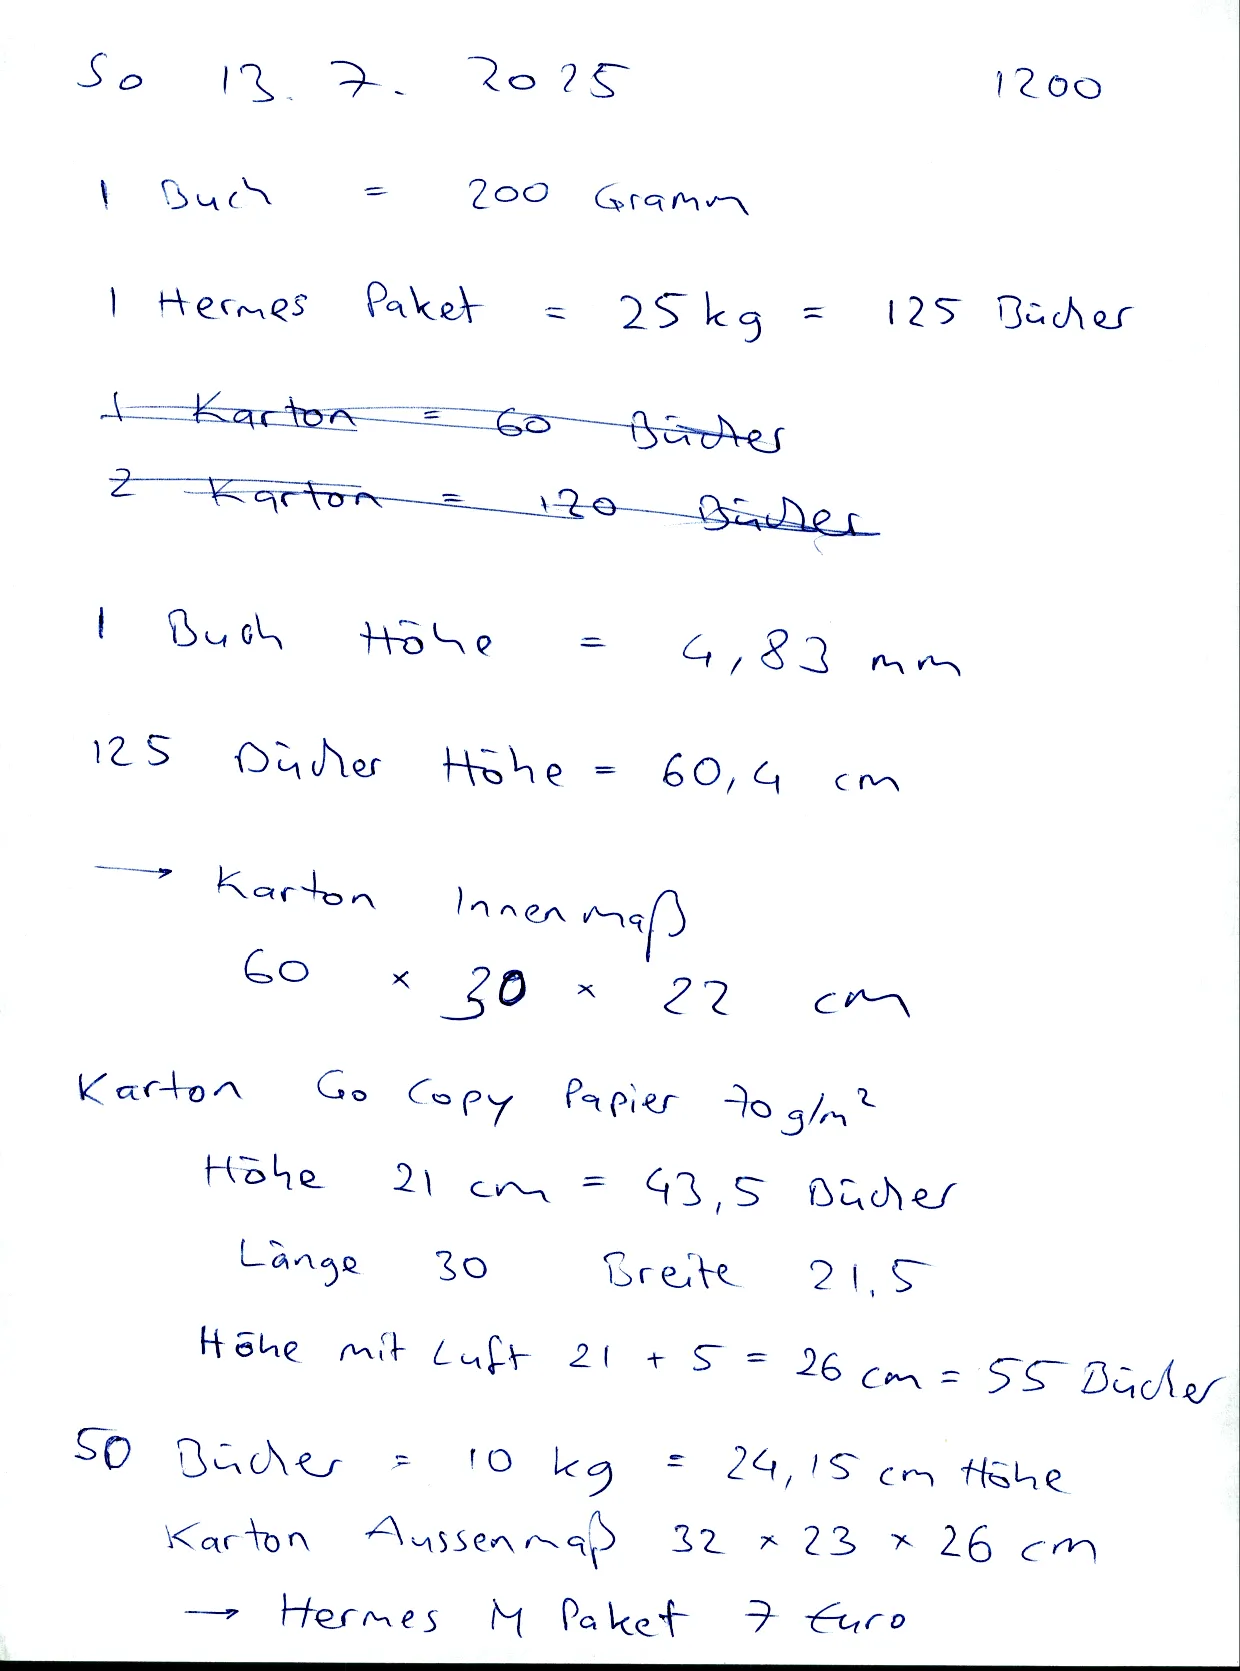 So 13. 7. 2025 1200
1 Buch = 200 Gramm
1 Hermes Paket = 25 kg = 125 Bücher
1 Karton = 60 Bücher
2 Karton = 120 Bücher
1 Buch Höhe = 4,83 mm
125 Bücher Höhe = 60,4 cm
→ Karton Innenmaß
60 × 30 × 22 cm
Karton Go Copy Papier 70 g/m²
Höhe 21 cm = 43,5 Bücher
Länge 30 Breite 21,5
Höhe mit Luft 21 + 5 = 26 cm = 55 Bücher
50 Bücher = 10 kg = 24,15 cm Höhe
Karton Aussenmaß 32 × 23 × 26 cm
→ Hermes M Paket 7 Euro